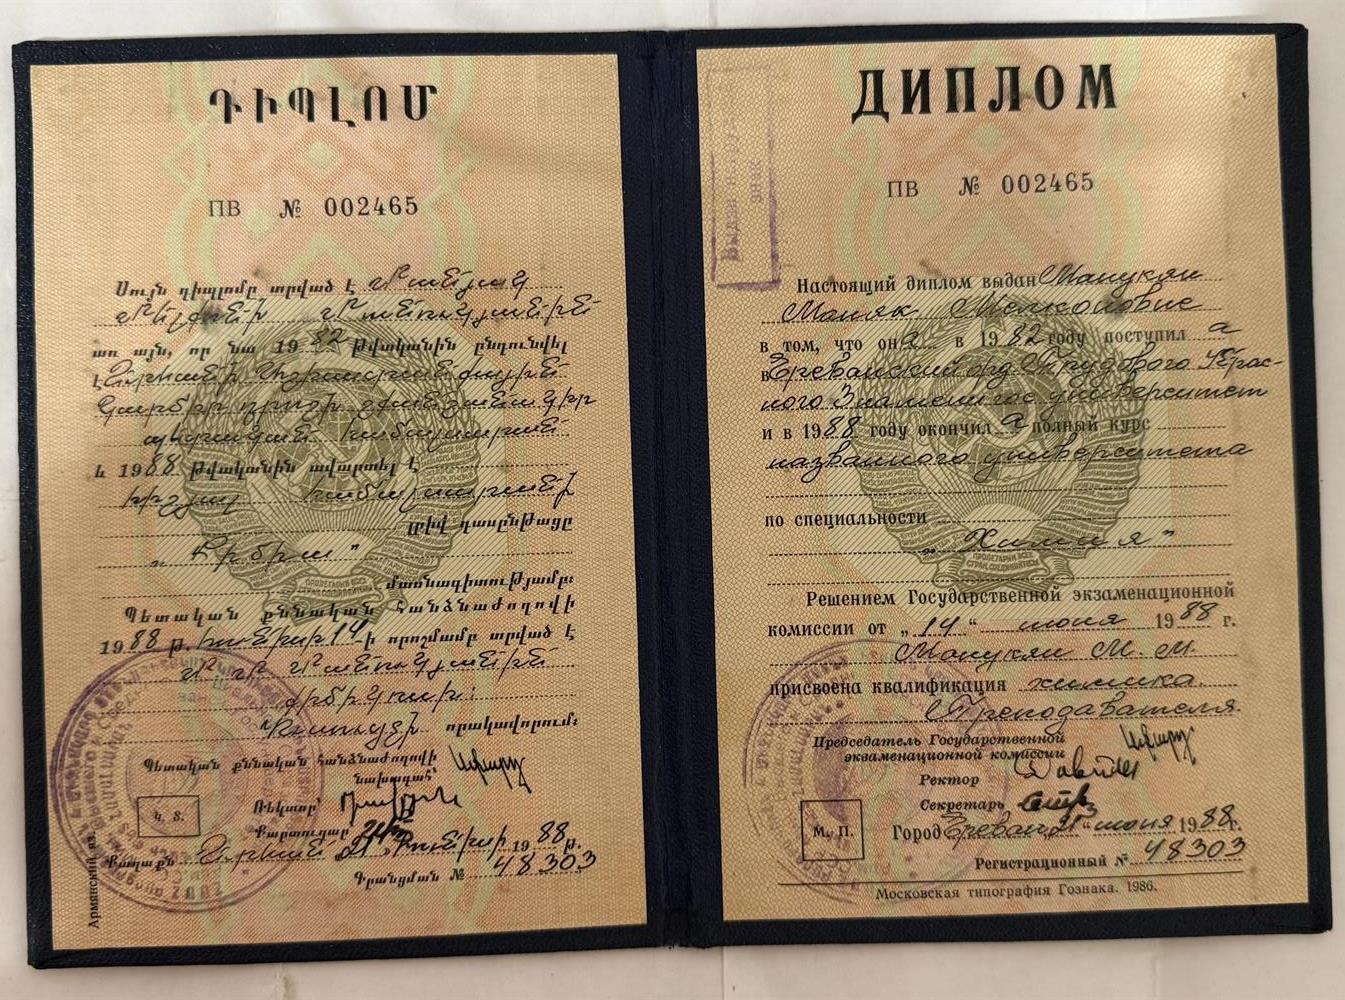 ԴԻՊԼՈՄ
ПВ № 002465
Սույն դիպլոմը տրված է Մանյակ
Մելքոնի Մանուկյանին
առ այն, որ նա 1982 թվականին ընդունվել
է Երևանի Աշխատանքային
Կարմիր դրոշի շքանշանակիր
պետական համալսարանը
և 1988 թվականին ավարտել է
նշյալ համալսարանի
լրիվ դասընթացը
„Քիմիա"
մասնագիտությամբ:
Պետական քննական հանձնաժողովի
1988 թ. հունիսի 14-ի որոշմամբ տրված է
Մ. Մ. Մանուկյանին
քիմիկոսի:
Դասատուի որակավորում:
Պետական քննական հանձնաժողովի
նախագահ՝
Ռեկտոր՝
Կ. Տ.
Քարտուղար՝
Քաղաքն Երևան „21" հունիսի 1988 թ.
Գրանցման № 48303
Армянский яз.
ДИПЛОМ
ПВ № 002465
Настоящий диплом выдан Манукян
Маняк Мелконовне
в том, что она в 1982 году поступила
в Ереванский орд. Трудового Крас-
ного Знамени гос. университет
и в 1988 году окончила полный курс
названного университета
по специальности
„Химия"
Решением Государственной экзаменационной
комиссии от „14" июня 1988 г.
Манукян М. М.
присвоена квалификация химика.
Преподавателя.
Председатель Государственной
экзаменационной комиссии
Ректор
Секретарь
М. П.
Город Ереван „21" июня 1988 г.
Регистрационный № 48303
Московская типография Гознака. 1986.